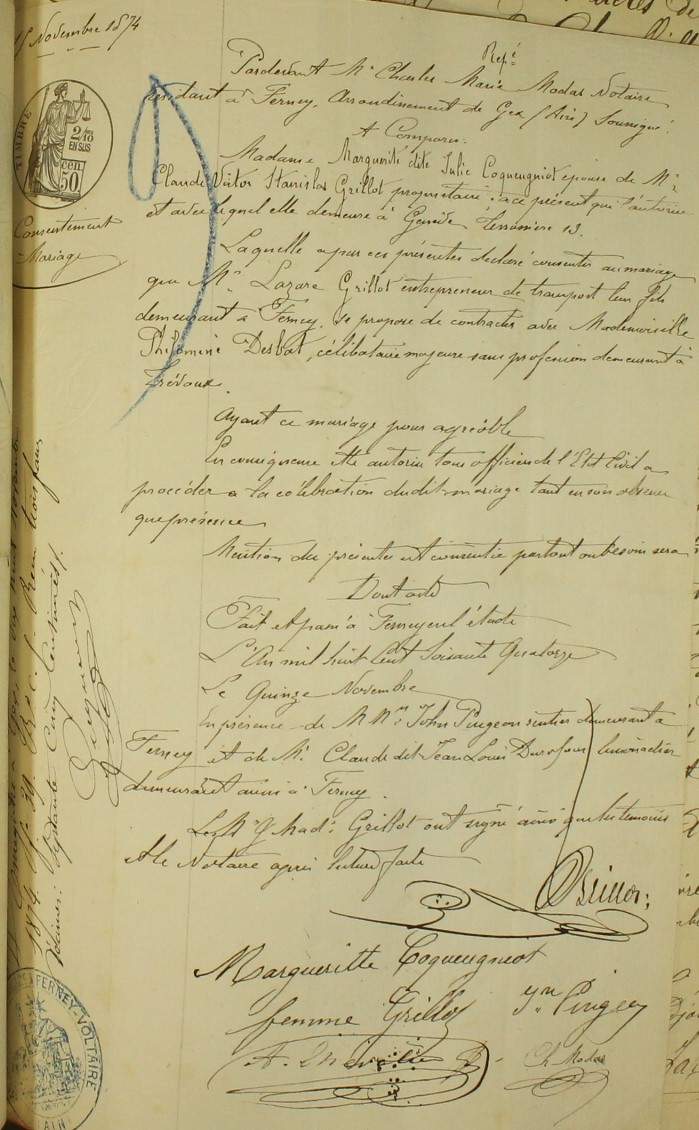 15 Novembre 1874
Repé
Pardevant Me Charles Marie Modas Notaire
résidant à Ferney, Arrondissement de Gex (Ain) Soussigné.
A Comparu.
TIMBRE
2/10
EN SUS
50 cen
Consentement
à Mariage
Madame Marguerite dite Julie Coqueugniot épouse de Mr
Claude Victor Stanislas Grillot propriétaire, à ce présent qui l'autorise
et avec lequel elle demeure à Genève Terrassière 13.
Laquelle a par ces présentes déclaré consentir au mariage
que Mr Lazare Grillot entrepreneur de transport leur fils
demeurant à Ferney, se propose de contracter avec Mademoiselle
Philomine Desbat, célibataire majeure sans profession demeurant à
Trévoux.
Ayant ce mariage pour agréable
En conséquence elle autorise tous officiers de l'Etat Civil a
procéder a la célébration dudit mariage tant en son absence
que présence
Mention des présentes est consentie partout où besoin sera
Dont acte
Fait et passé à Ferney en l'étude
L'An mil huit Cent Soixante Quatorze
Le Quinze Novembre
En présence de MMrs John Pingeon rentier demeurant a
Ferney et de Mr Claude dit Jean Louis limonadier
demeurant aussi à Ferney.
Les Mr & Made Grillot ont signé ainsi que les témoins
et le Notaire après lecture faite
Grillot
Margueritte Coqueugniot
femme Grillot Jn Pingeon
Ch Modas
1874 39 trois francs
Décimes: Soixante Quinze Centimes
FERNEY-VOLTAIRE
(AIN)